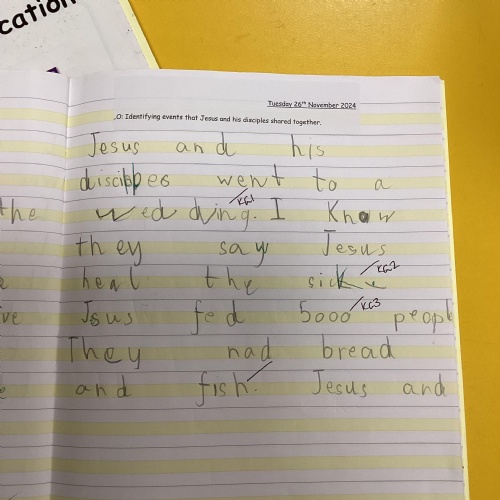 cation
Tuesday 26th November 2024
.O: Identifying events that Jesus and his disciples shared together.
Jesus and his
discibbes went to a
the wed dving. I Know
KG1
they say Jesus
heal the sick
KG2
ve Jsus fed 5000 peopl
KG3
They had bread
e and fish. Jesus and